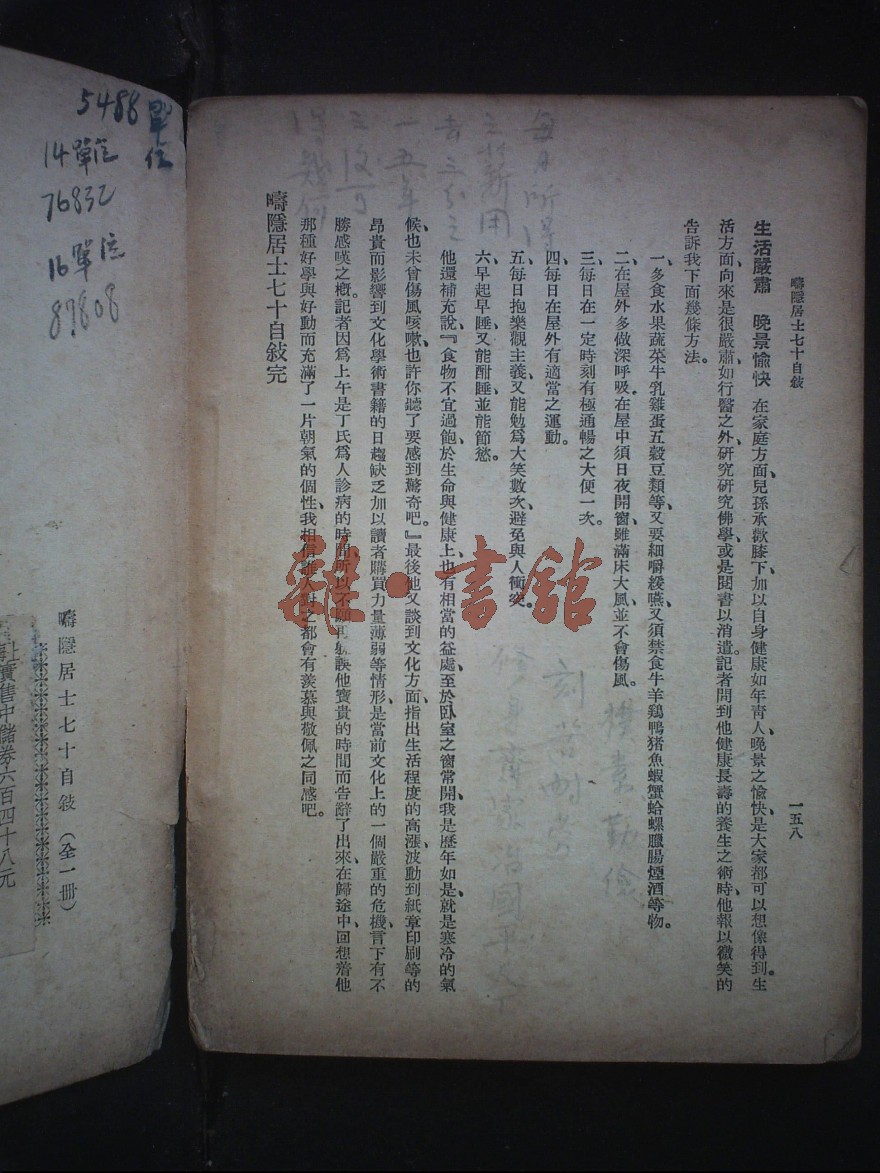 疇隱居士七十自敍
一五八
生活嚴肅　晚景愉快 在家庭方面、兒孫承歡膝下、加以自身健康如年靑人、晚景之愉快、是大家都可以想像得到。生
活方面、向來是很嚴肅、如行醫之外、研究研究佛學、或是閱書以消遣。記者問到他健康長壽的養生之術時、他報以微笑的
告訴我下面幾條方法。
一、多食水果蔬菜牛乳雞蛋五穀豆類等、又要細嚼緩嚥、又須禁食牛羊鷄鴨猪魚蝦蟹蛤螺臘腸煙酒等物。
二、在屋外多做深呼吸、在屋中須日夜開窗、雖滿床大風、並不會傷風。
三、每日在一定時刻有極通暢之大便一次。
四、每日在屋外有適當之運動。
五、每日抱樂觀主義、又能勉爲大笑數次、避免與人衝突。
六、早起早睡、又能酣睡、並能節慾。
他還補充說、『食物不宜過飽、於生命與健康上也有相當的益處、至於臥室之窗常開、我是歷年如是、就是寒冷的氣
候、也未曾傷風咳嗽、也許你聽了要感到驚奇吧。』最後他又談到文化方面、指出生活程度的高漲、波動到紙章印刷等的
昂貴、而影響到文化學術書籍的日趨缺乏、加以讀者購買力量薄弱等情形、是當前文化上的一個嚴重的危機、言下有不
勝感嘆之概。記者因爲上午是丁氏爲人診病的時間、所以不願再躭誤他寶貴的時間、而告辭了出來、在歸途中、回想着他
那種好學與好動而充滿了一片朝氣的個性、我相信誰人對之都會有羨慕與敬佩之同感吧。
疇隱居士七十自敍完
每日所得
之薪用
去三分之
一五年
之後可
得幾何
樸素勤儉
刻苦耐勞
修身齊家治國平天下
5488單位
14單位
76832
16單位
87808
疇隱居士七十自敍（全一冊）
實售中儲券六百四十八元
雜·書館